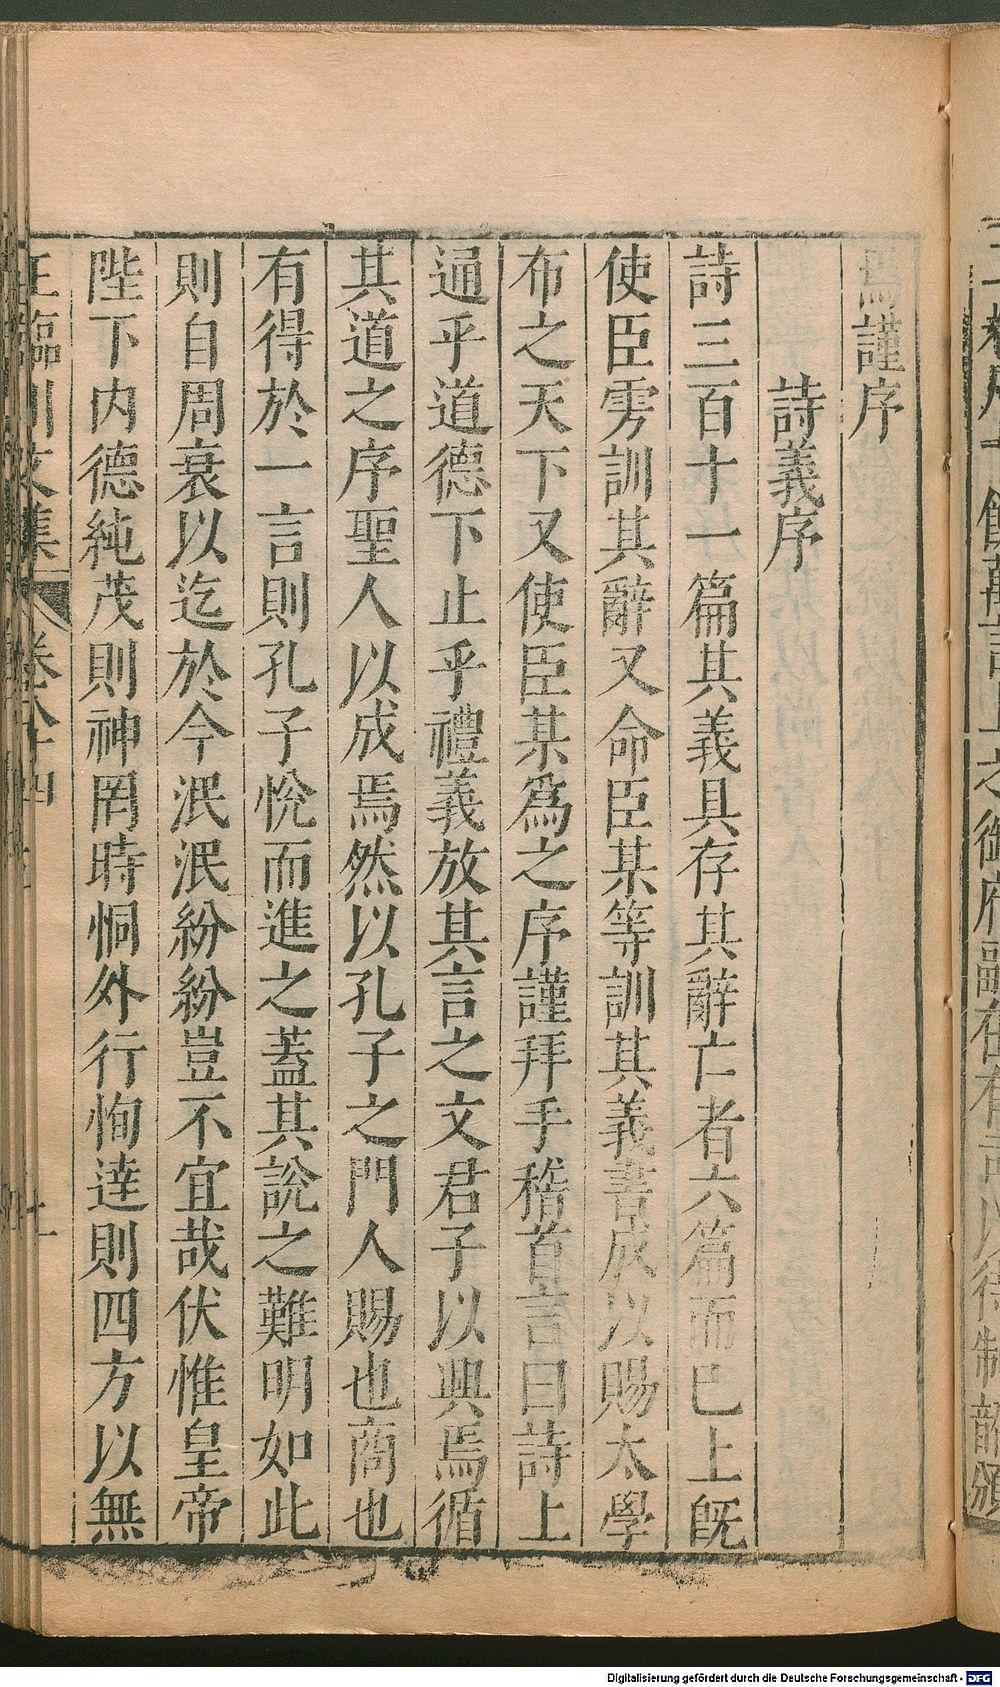 焉謹序
詩義序
詩三百十一篇其義具存其辭亡者六篇而巳上旣
使臣雱訓其辭又命臣某等訓其義書成以賜太學
布之天下又使臣某爲之序謹拜手稽首言曰詩上
通乎道德下止乎禮義放其言之文君子以興焉循
其道之序聖人以成焉然以孔子之門人賜也商也
有得於一言則孔子悅而進之蓋其說之難明如此
則自周衰以迄於今泯泯紛紛豈不宜哉伏惟皇帝
陛下内德純茂則神罔時恫外行恂達則四方以無
王臨川文集 卷八十四
Digitalisierung gefördert durch die Deutsche Forschungsgemeinschaft - DFG